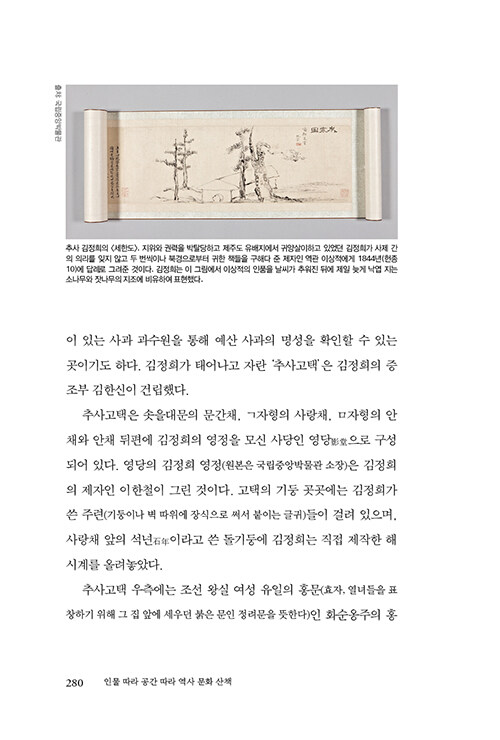 출처: 국립중앙박물관
추사 김정희의 〈세한도〉. 지위와 권력을 박탈당하고 제주도 유배지에서 귀양살이하고 있었던 김정희가 사제 간
의 의리를 잊지 않고 두 번씩이나 북경으로부터 귀한 책들을 구해다 준 제자인 역관 이상적에게 1844년(헌종
10)에 답례로 그려준 것이다. 김정희는 이 그림에서 이상적의 인품을 날씨가 추워진 뒤에 제일 늦게 낙엽 지는
소나무와 잣나무의 지조에 비유하여 표현했다.
이 있는 사과 과수원을 통해 예산 사과의 명성을 확인할 수 있는
곳이기도 하다. 김정희가 태어나고 자란 '추사고택'은 김정희의 증
조부 김한신이 건립했다.
추사고택은 솟을대문의 문간채, ㄱ자형의 사랑채, ㅁ자형의 안
채와 안채 뒤편에 김정희의 영정을 모신 사당인 영당影堂으로 구성
되어 있다. 영당의 김정희 영정(원본은 국립중앙박물관 소장)은 김정희
의 제자인 이한철이 그린 것이다. 고택의 기둥 곳곳에는 김정희가
쓴 주련(기둥이나 벽 따위에 장식으로 써서 붙이는 글귀)들이 걸려 있으며,
사랑채 앞의 석년石年이라고 쓴 돌기둥에 김정희는 직접 제작한 해
시계를 올려놓았다.
추사고택 우측에는 조선 왕실 여성 유일의 홍문(효자, 열녀들을 표
창하기 위해 그 집 앞에 세우던 붉은 문인 정려문을 뜻한다)인 화순옹주의 홍
280 인물 따라 공간 따라 역사 문화 산책